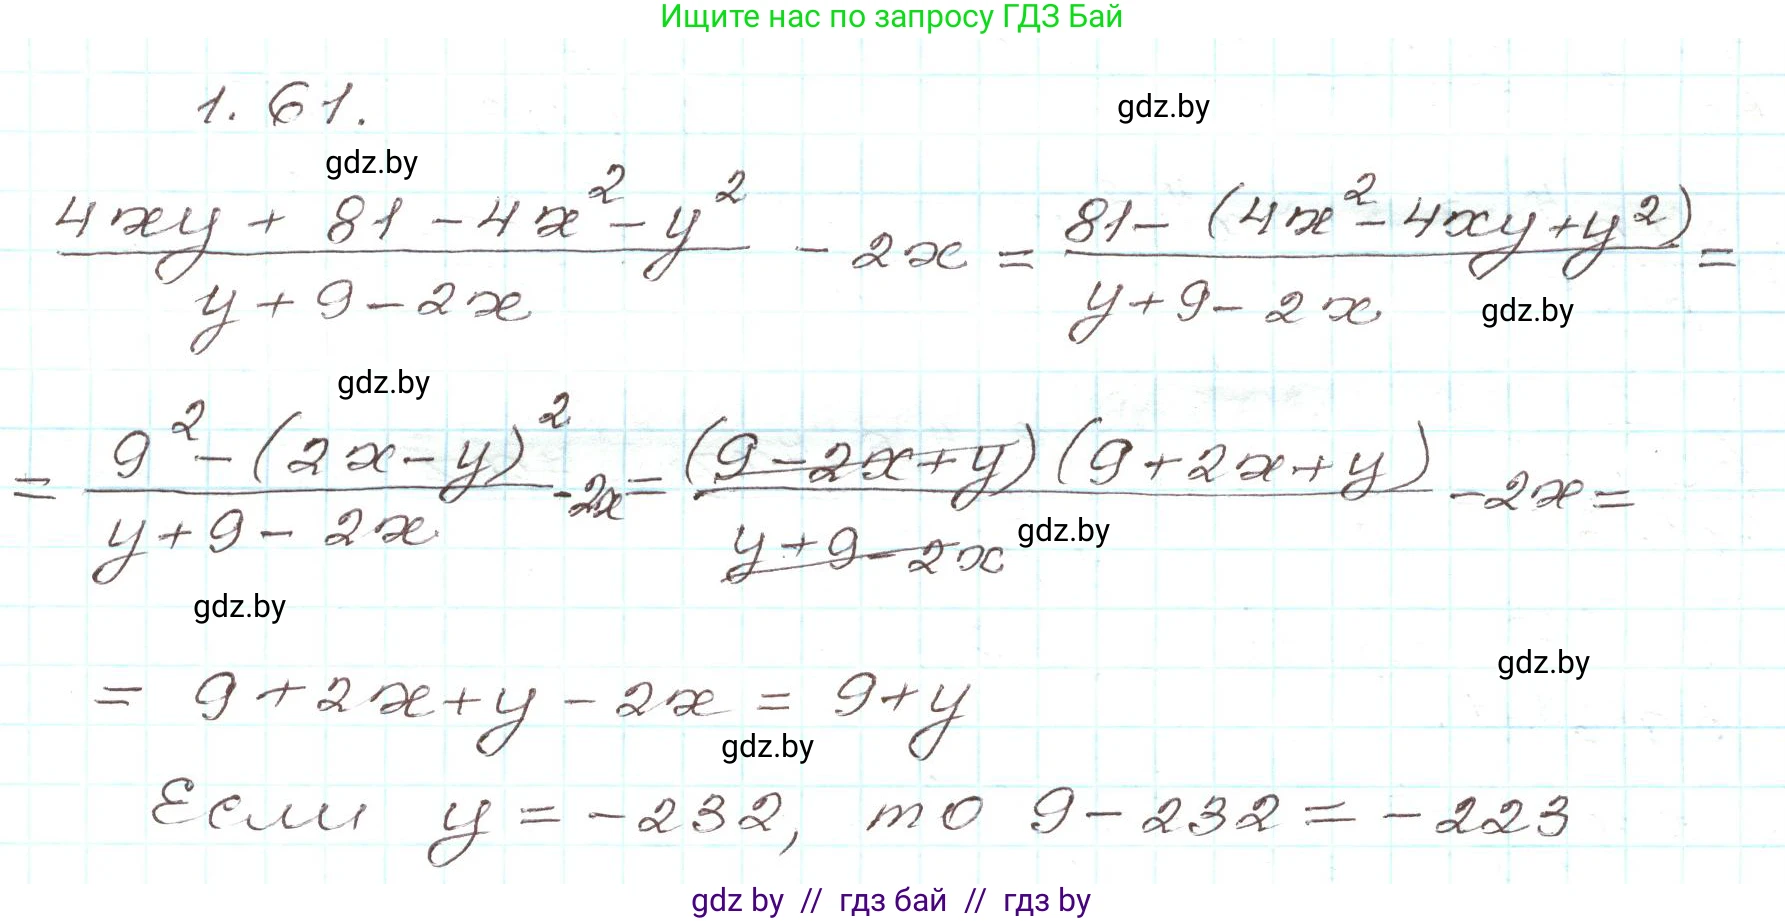 Ищите нас по запросу ГДЗ Бай
1.61.
gdz.by
gdz.by
(4xy + 81 - 4x² - y²)/(y + 9 - 2x) - 2x = (81 - (4x² - 4xy + y²))/(y + 9 - 2x) =
gdz.by
gdz.by
= (9² - (2x - y)²)/(y + 9 - 2x) - 2x = ((9 - 2x + y)(9 + 2x + y))/(y + 9 - 2x) - 2x =
gdz.by
gdz.by
gdz.by
= 9 + 2x + y - 2x = 9 + y
gdz.by
Если y = -232, то 9 - 232 = -223
gdz by // гдз бай // гдз by